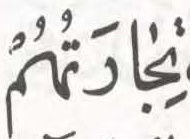 تِّجَارَتُهُمْ